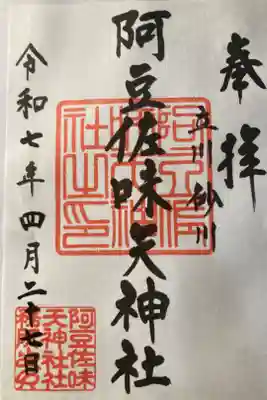 奉拝
立川砂川
阿豆佐味天神社
令和七年四月二十七日
阿豆佐味
天神社